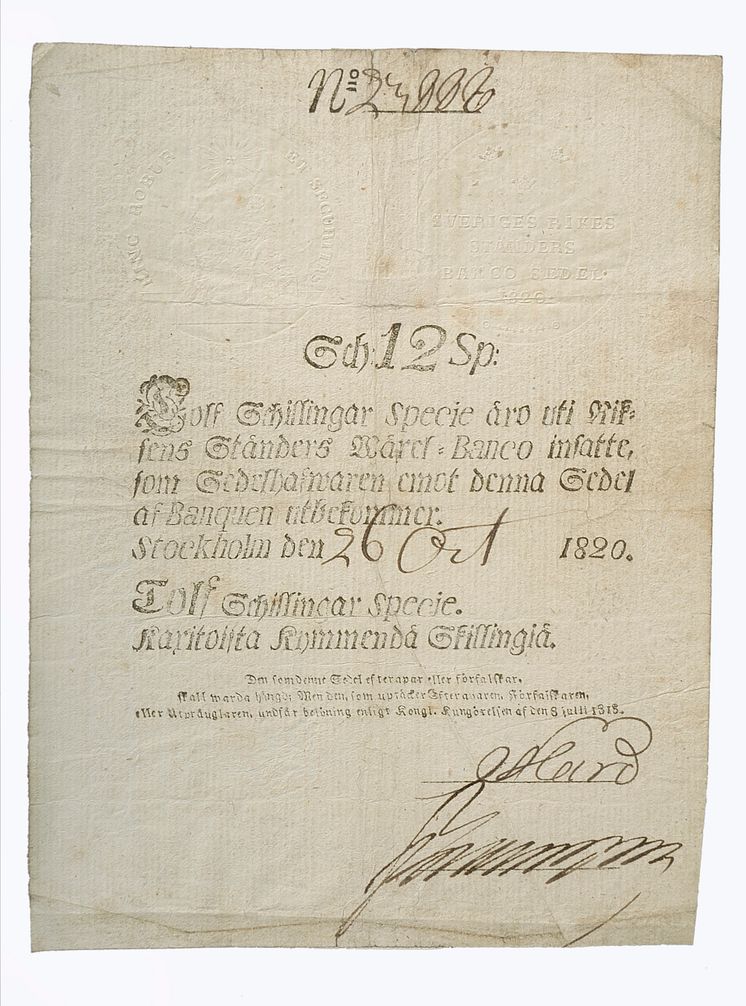 No 23,886
HINC ROBUR ET SECURITAS
SVERIGES RIKES
STÄNDERS
BANCO SEDEL
1820.
Sch: 12 Sp:
Tolf Schillingar Specie äro uti Rik-
sens Ständers Wäxel-Banco insatte,
som Sedelhafwaren emot denna Sedel
af Banquen utbekommer.
Stockholm den 26 Oct 1820.
Tolf Schillingar Specie.
Kaxitoista Kymmendä Skillingiä.
Den som denne Sedel efterapar eller förfalskar,
skall warda hängd; Men den, som uptäcker Efteraparen, Förfalskaren,
eller Utprånglaren, undfår belöning enligt Kongl. Kungörelsen af den 8 julii 1818.